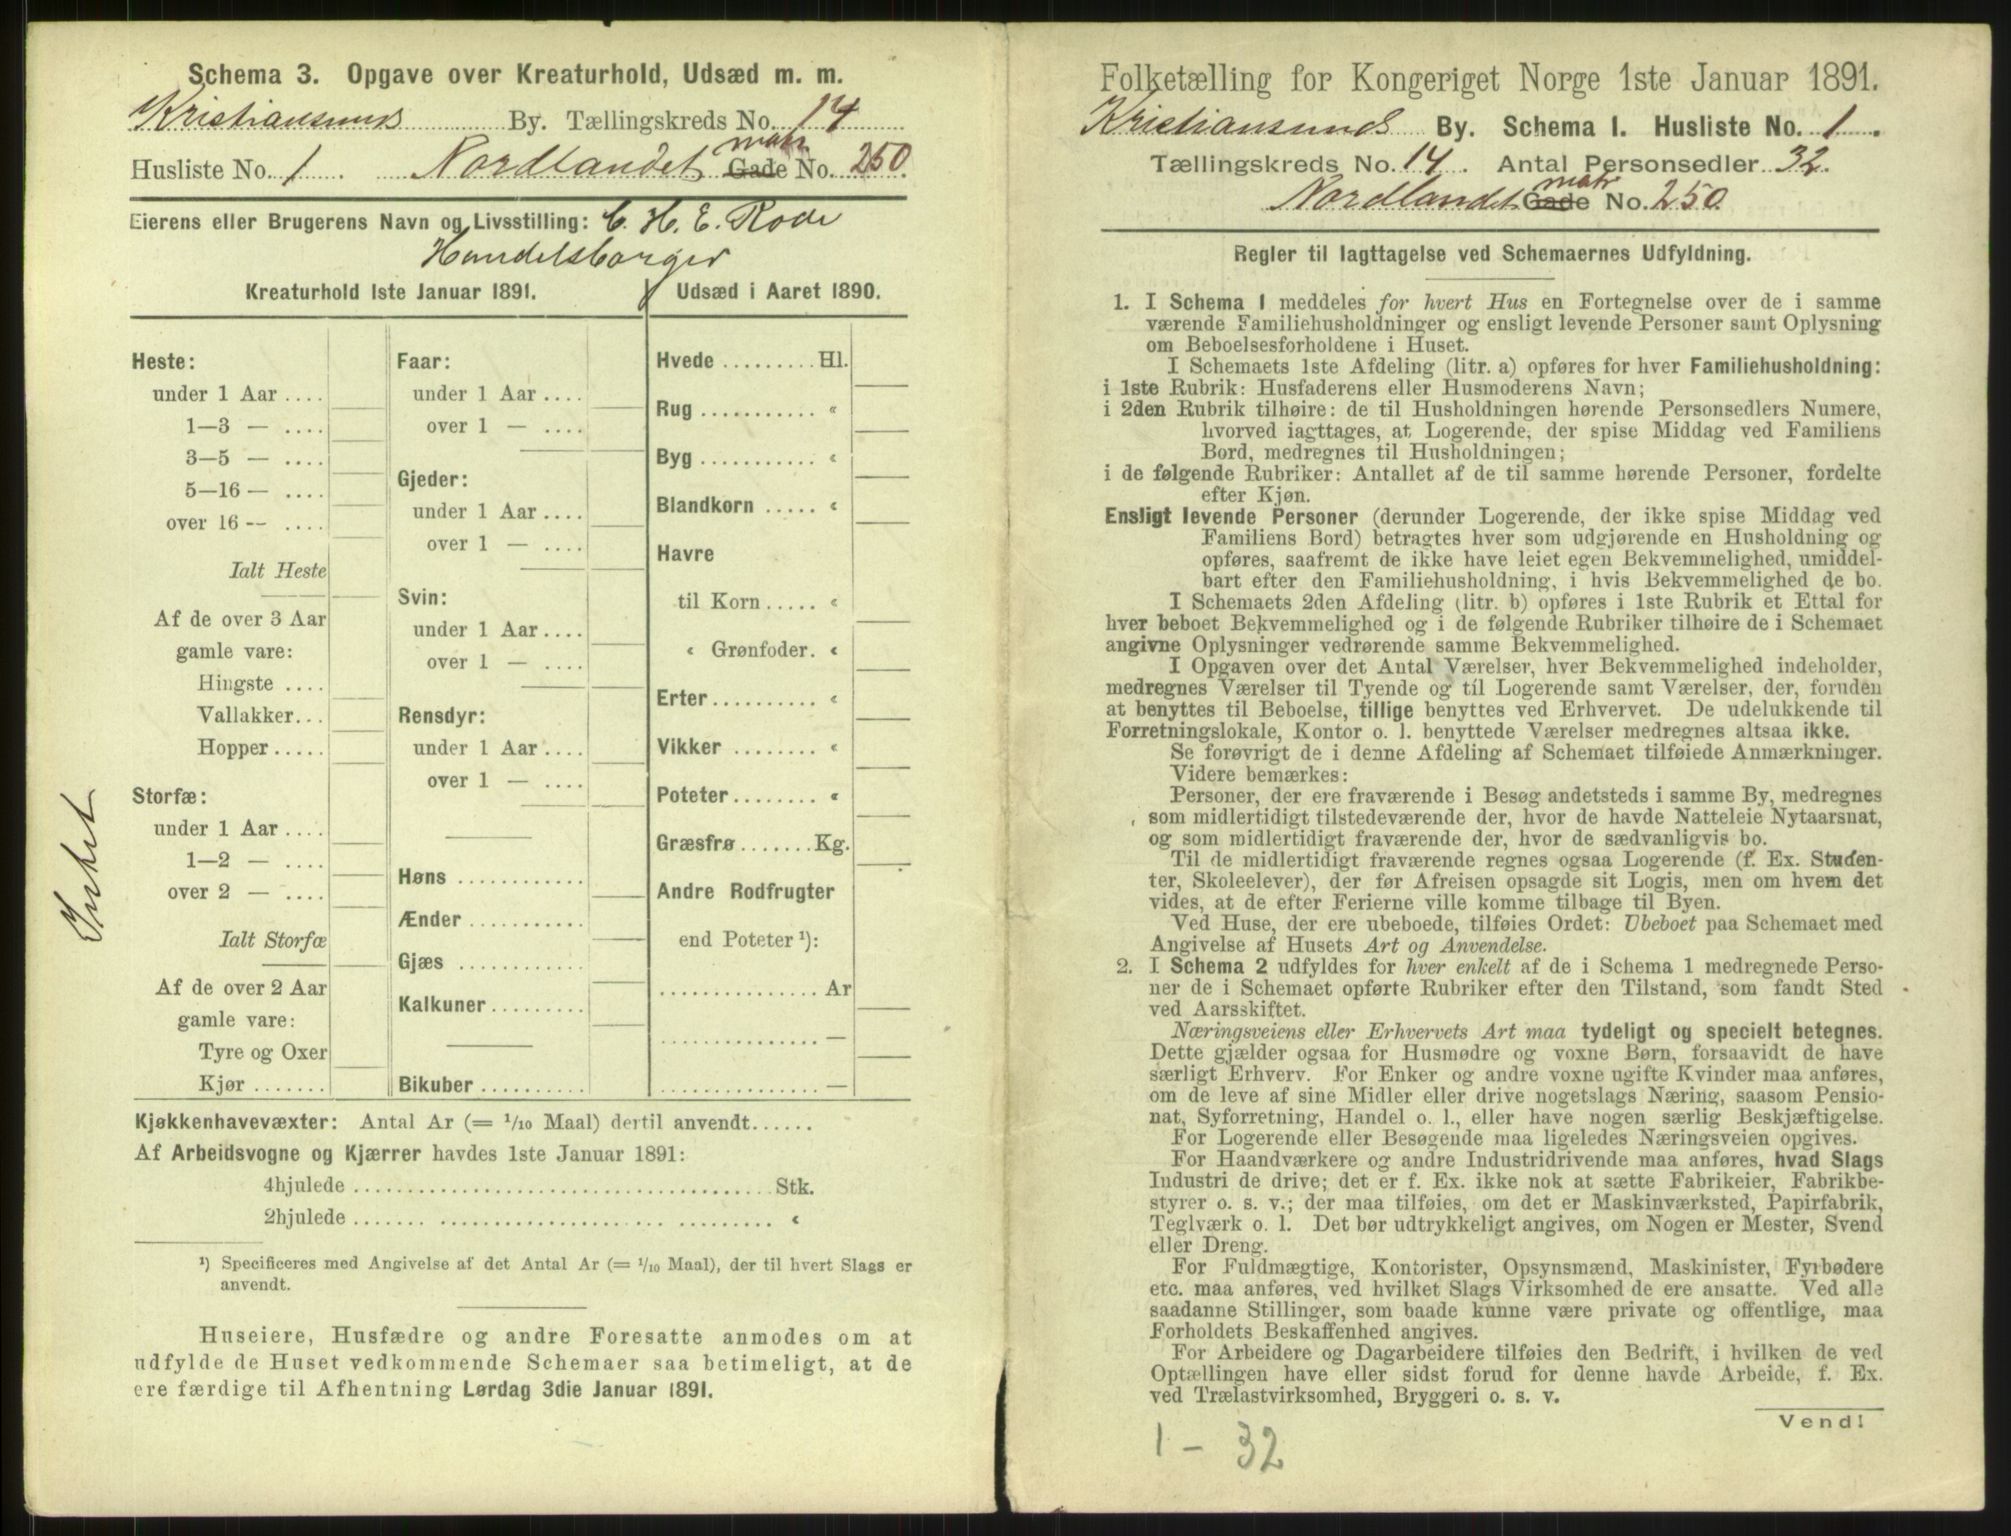 Schema 3. Opgave over Kreaturhold, Udsæd m. m.
Kristiansunds By. Tællingskreds No. 14
Husliste No. 1 Nordlandet Gade matr No. 250.
Eierens eller Brugerens Navn og Livsstilling: C. H. E. Rode
Handelsborger
Kreaturhold 1ste Januar 1891.
Heste:
under 1 Aar ....
1—3 — ....
3—5 — ....
5—16 — ....
over 16 -- ....
Ialt Heste
Af de over 3 Aar
gamle vare:
Hingste ....
Vallakker...
Hopper .....
Storfæ:
under 1 Aar ....
1—2 — ....
over 2 — ....
Ialt Storfæ
Af de over 2 Aar
gamle vare:
Tyre og Oxer
Kjør .......
Faar:
under 1 Aar ....
over 1 — ....
Gjeder:
under 1 Aar ....
over 1 — ....
Svin:
under 1 Aar ....
over 1 — ....
Rensdyr:
under 1 Aar ....
over 1 — ....
Høns ............
Ænder ...........
Gjæs ............
Kalkuner .........
Bikuber ..........
Udsæd i Aaret 1890.
Hvede ......... Hl.
Rug ........... «
Byg ........... «
Blandkorn ..... «
Havre
til Korn ..... «
« Grønfoder. «
Erter .......... «
Vikker ........ «
Poteter ........ «
Græsfrø ....... Kg.
Andre Rodfrugter
end Poteter ¹):
............... Ar
............... —
............... —
Intet
Kjøkkenhavevæxter: Antal Ar (= 1/10 Maal) dertil anvendt......
Af Arbeidsvogne og Kjærrer havdes 1ste Januar 1891:
4hjulede ........................................ Stk.
2hjulede ........................................ «
¹) Specificeres med Angivelse af det Antal Ar (= 1/10 Maal), der til hvert Slags er
anvendt.
Huseiere, Husfædre og andre Foresatte anmodes om at
udfylde de Huset vedkommende Schemaer saa betimeligt, at de
ere færdige til Afhentning Lørdag 3die Januar 1891.
Folketælling for Kongeriget Norge 1ste Januar 1891.
Kristiansunds By. Schema I. Husliste No. 1.
Tællingskreds No. 14. Antal Personsedler 32.
Nordlandet Gade matr No. 250.
Regler til Iagttagelse ved Schemaernes Udfyldning.
1. I Schema 1 meddeles for hvert Hus en Fortegnelse over de i samme
værende Familiehusholdninger og ensligt levende Personer samt Oplysning
om Beboelsesforholdene i Huset.
I Schemaets 1ste Afdeling (litr. a) opføres for hver Familiehusholdning:
i 1ste Rubrik: Husfaderens eller Husmoderens Navn;
i 2den Rubrik tilhøire: de til Husholdningen hørende Personsedlers Numere,
hvorved iagttages, at Logerende, der spise Middag ved Familiens
Bord, medregnes til Husholdningen;
i de følgende Rubriker: Antallet af de til samme hørende Personer, fordelte
efter Kjøn.
Ensligt levende Personer (derunder Logerende, der ikke spise Middag ved
Familiens Bord) betragtes hver som udgjørende en Husholdning og
opføres, saafremt de ikke have leiet egen Bekvemmelighed, umiddel-
bart efter den Familiehusholdning, i hvis Bekvemmelighed de bo.
I Schemaets 2den Afdeling (litr. b) opføres i 1ste Rubrik et Ettal for
hver beboet Bekvemmelighed og i de følgende Rubriker tilhøire de i Schemaet
angivne Oplysninger vedrørende samme Bekvemmelighed.
I Opgaven over det Antal Værelser, hver Bekvemmelighed indeholder,
medregnes Værelser til Tyende og til Logerende samt Værelser, der, foruden
at benyttes til Beboelse, tillige benyttes ved Erhvervet. De udelukkende til
Forretningslokale, Kontor o. l. benyttede Værelser medregnes altsaa ikke.
Se forøvrigt de i denne Afdeling af Schemaet tilføiede Anmærkninger.
Videre bemærkes:
Personer, der ere fraværende i Besøg andetsteds i samme By, medregnes
som midlertidigt tilstedeværende der, hvor de havde Natteleie Nytaarsnat,
og som midlertidigt fraværende der, hvor de sædvanligvis bo.
Til de midlertidigt fraværende regnes ogsaa Logerende (f. Ex. Studen-
ter, Skoleelever), der før Afreisen opsagde sit Logis, men om hvem det
vides, at de efter Ferierne ville komme tilbage til Byen.
Ved Huse, der ere ubeboede, tilføies Ordet: Ubeboet paa Schemaet med
Angivelse af Husets Art og Anvendelse.
2. I Schema 2 udfyldes for hver enkelt af de i Schema 1 medregnede Perso-
ner de i Schemaet opførte Rubriker efter den Tilstand, som fandt Sted
ved Aarsskiftet.
Næringsveiens eller Erhvervets Art maa tydeligt og specielt betegnes.
Dette gjælder ogsaa for Husmødre og voxne Børn, forsaavidt de have
særligt Erhverv. For Enker og andre voxne ugifte Kvinder maa anføres,
om de leve af sine Midler eller drive nogetslags Næring, saasom Pensio-
nat, Syforretning, Handel o. l., eller have nogen særlig Beskjæftigelse.
For Logerende eller Besøgende maa ligeledes Næringsveien opgives.
For Haandværkere og andre Industridrivende maa anføres, hvad Slags
Industri de drive; det er f. Ex. ikke nok at sætte Fabrikeier, Fabrikbe-
styrer o. s. v.; der maa tilføies, om det er Maskinværksted, Papirfabrik,
Teglværk o. l. Det bør udtrykkeligt angives, om Nogen er Mester, Svend
eller Dreng.
For Fuldmægtige, Kontorister, Opsynsmænd, Maskinister, Fyrbødere
etc. maa anføres, ved hvilket Slags Virksomhed de ere ansatte. Ved alle
saadanne Stillinger, som baade kunne være private og offentlige, maa
Forholdets Beskaffenhed angives.
For Arbeidere og Dagarbeidere tilføies den Bedrift, i hvilken de ved
Optællingen have eller sidst forud for denne havde Arbeide, f. Ex.
ved Trælastvirksomhed, Bryggeri o. s. v.
Vend!
1 - 32